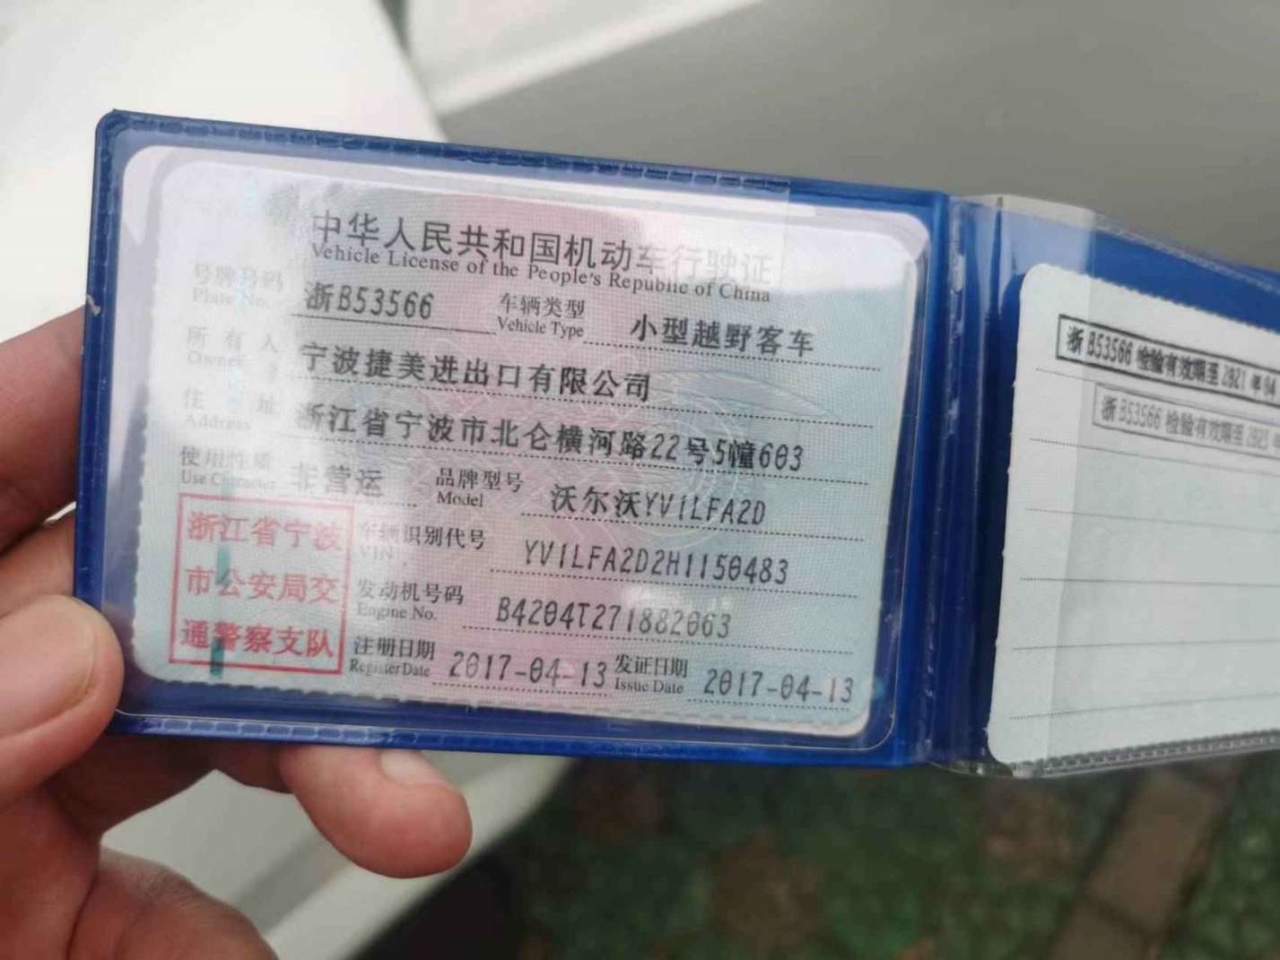 中华人民共和国机动车行驶证
Vehicle License of the People's Republic of China
号牌号码 浙B53566 车辆类型 小型越野客车
Plate No. Vehicle Type
所有人 宁波捷美进出口有限公司
Owner
住址 浙江省宁波市北仑横河路22号5幢603
Address
使用性质 非营运 品牌型号 沃尔沃YV1LFA2D
Use Character Model
浙江省宁波
市公安局交
通警察支队
车辆识别代号 YV1LFA2D2H1150483
VIN
发动机号码 B4204T271882063
Engine No.
注册日期 2017-04-13 发证日期 2017-04-13
Register Date Issue Date
浙B53566 检验有效期至2021年04
浙B53566 检验有效期至